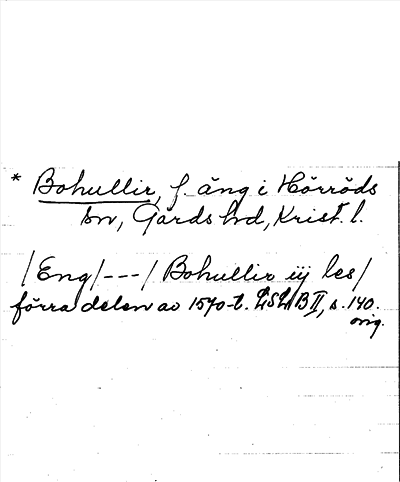 * Bohullir, f. äng i Hörröds
sn, Gärds hd, Krist. l.
/Eng/---/ Bohullir iij les/
förra delen av 1570-t. LSLB II, s. 140.
orig.